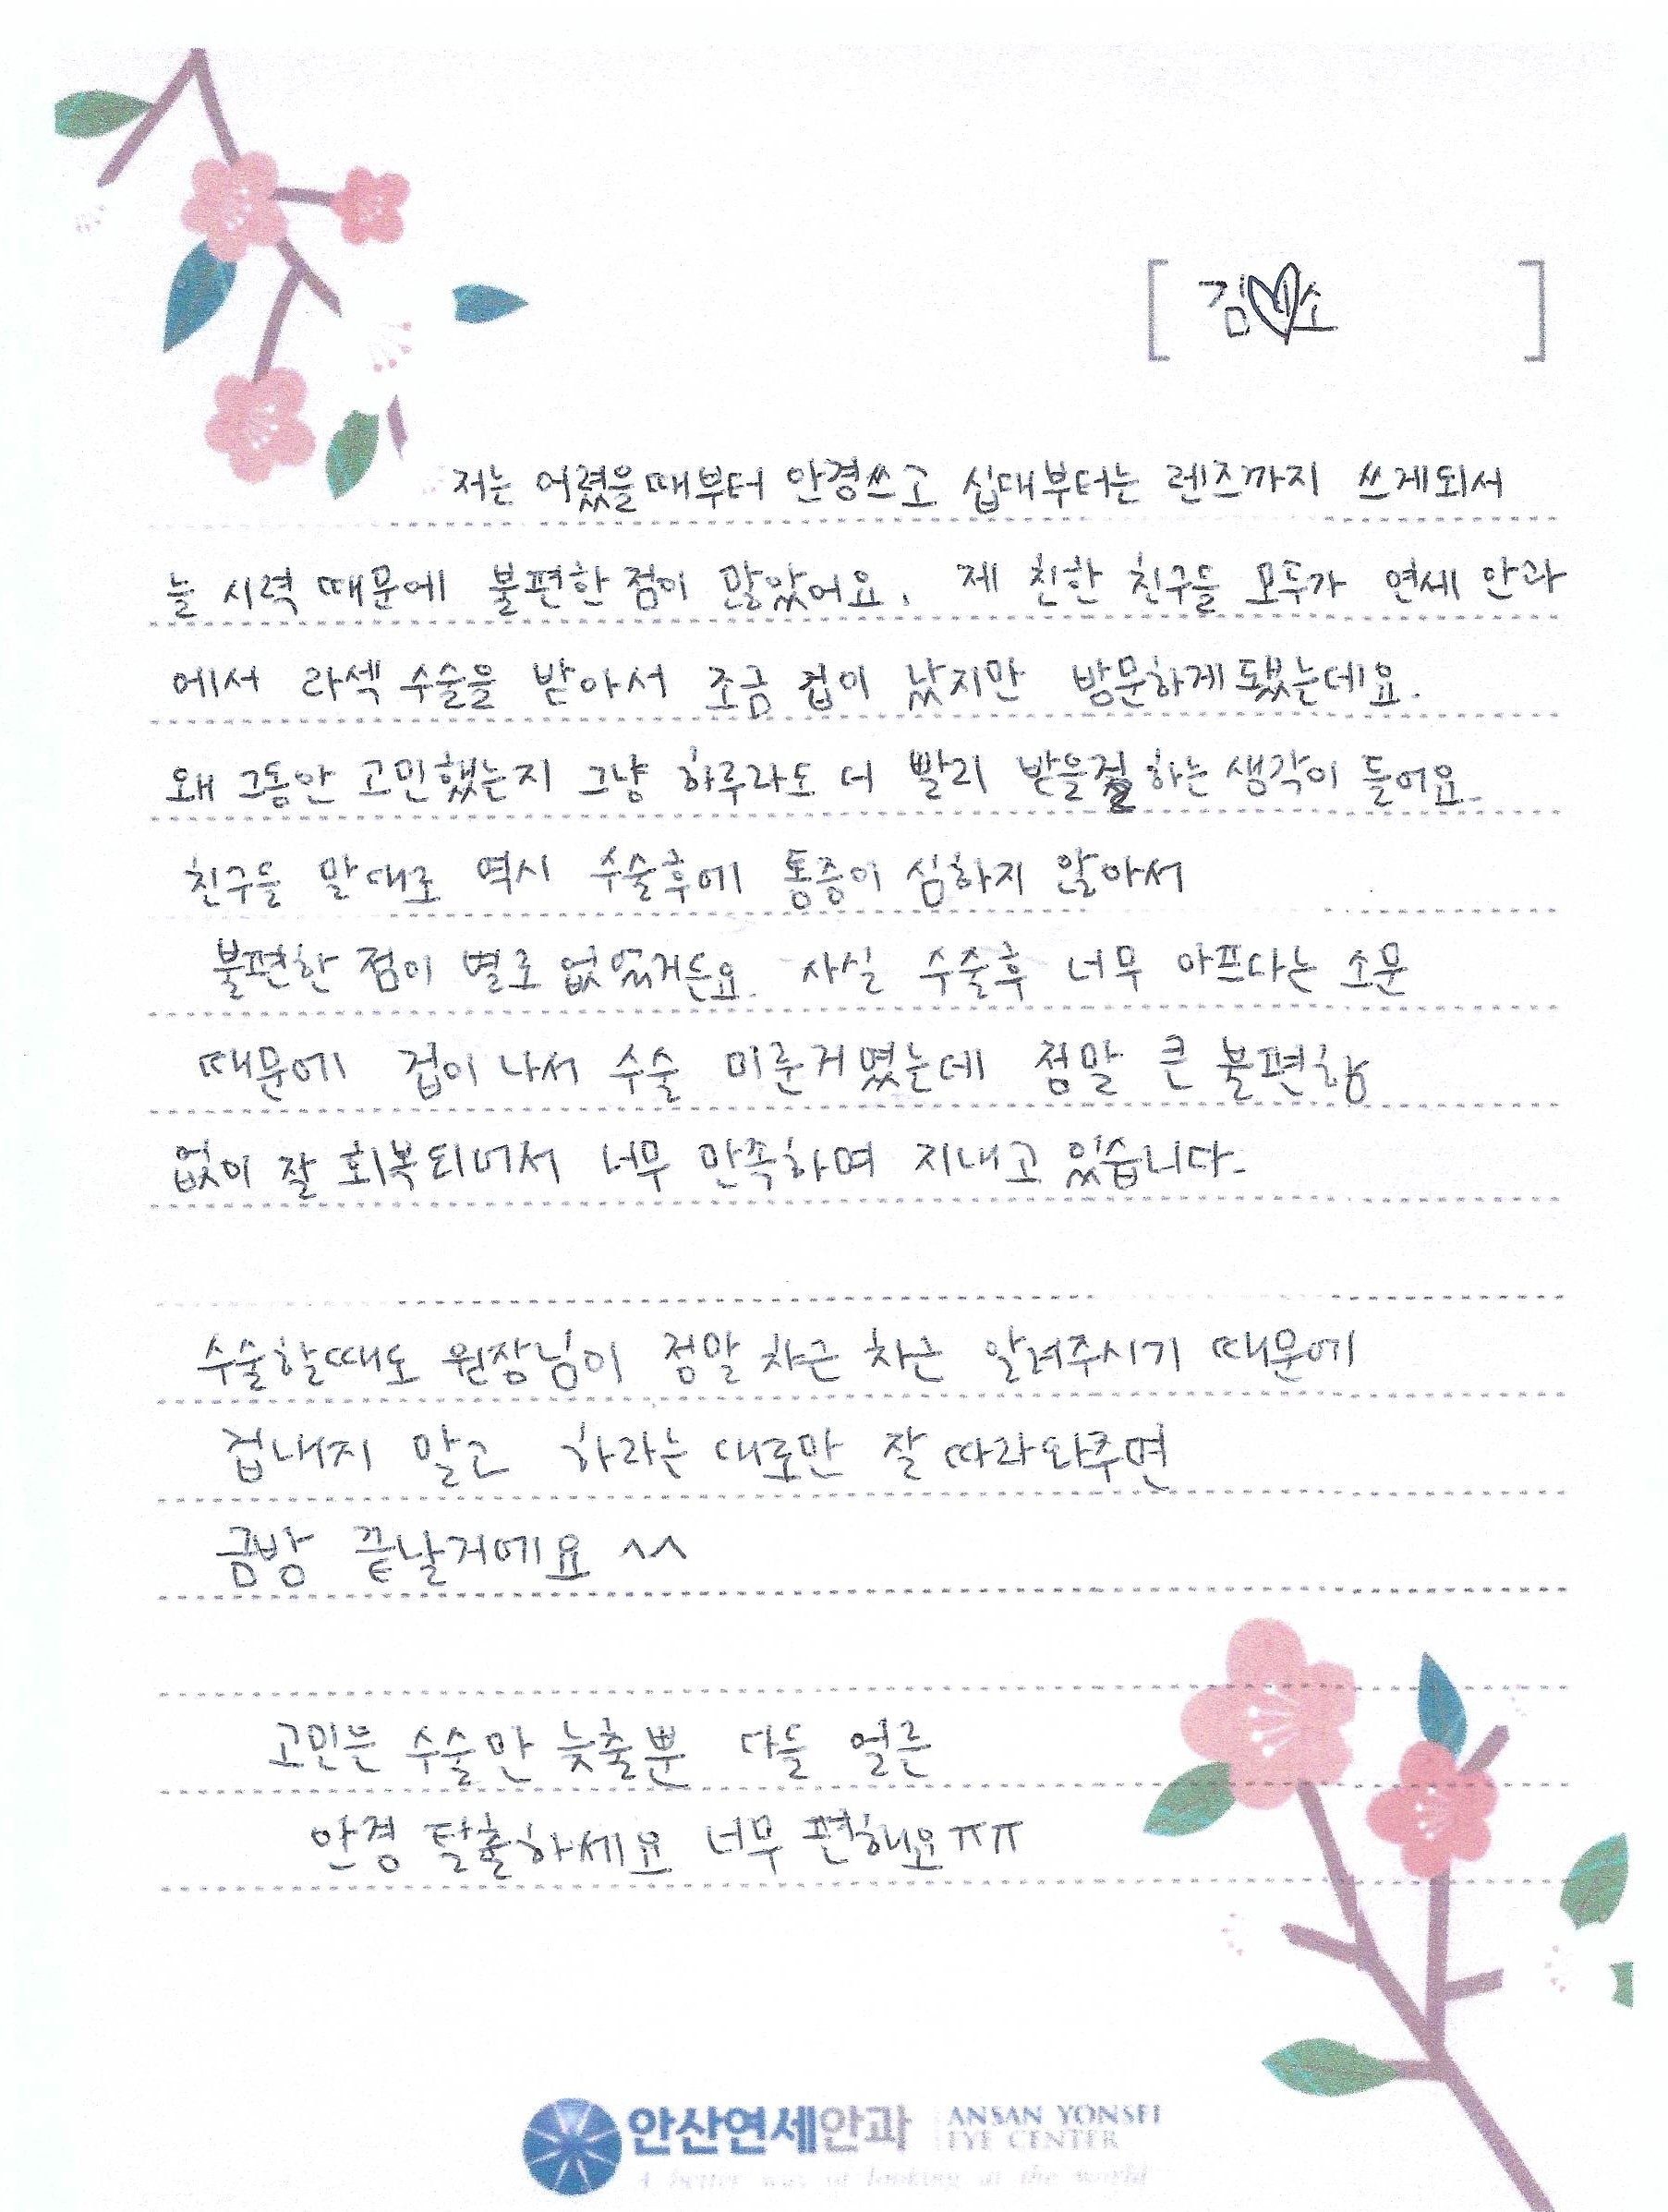 [ 김♡소 ]
저는 어렸을때부터 안경쓰고 십대부터는 렌즈까지 쓰게되서
늘 시력 때문에 불편한 점이 많았어요. 제 친한 친구들 모두가 연세 안과
에서 라섹 수술을 받아서 조금 겁이 났지만 방문하게 됐는데요.
왜 그동안 고민했는지 그냥 하루라도 더 빨리 받을걸 하는 생각이 들어요.
친구들 말대로 역시 수술후에 통증이 심하지 않아서
불편한 점이 별로 없었거든요. 사실 수술후 너무 아프다는 소문
때문에 겁이 나서 수술 미룬거였는데 정말 큰 불편함
없이 잘 회복되어서 너무 만족하며 지내고 있습니다.
수술할때도 원장님이 정말 차근 차근 알려주시기 때문에
겁내지 말고 하라는 대로만 잘 따라와주면
금방 끝날거에요 ^^
고민은 수술만 늦출뿐 다들 얼른
안경 탈출하세요 너무 편해요ㅠㅠ
안산연세안과 ANSAN YONSEI
EYE CENTER
A better way of looking at the world